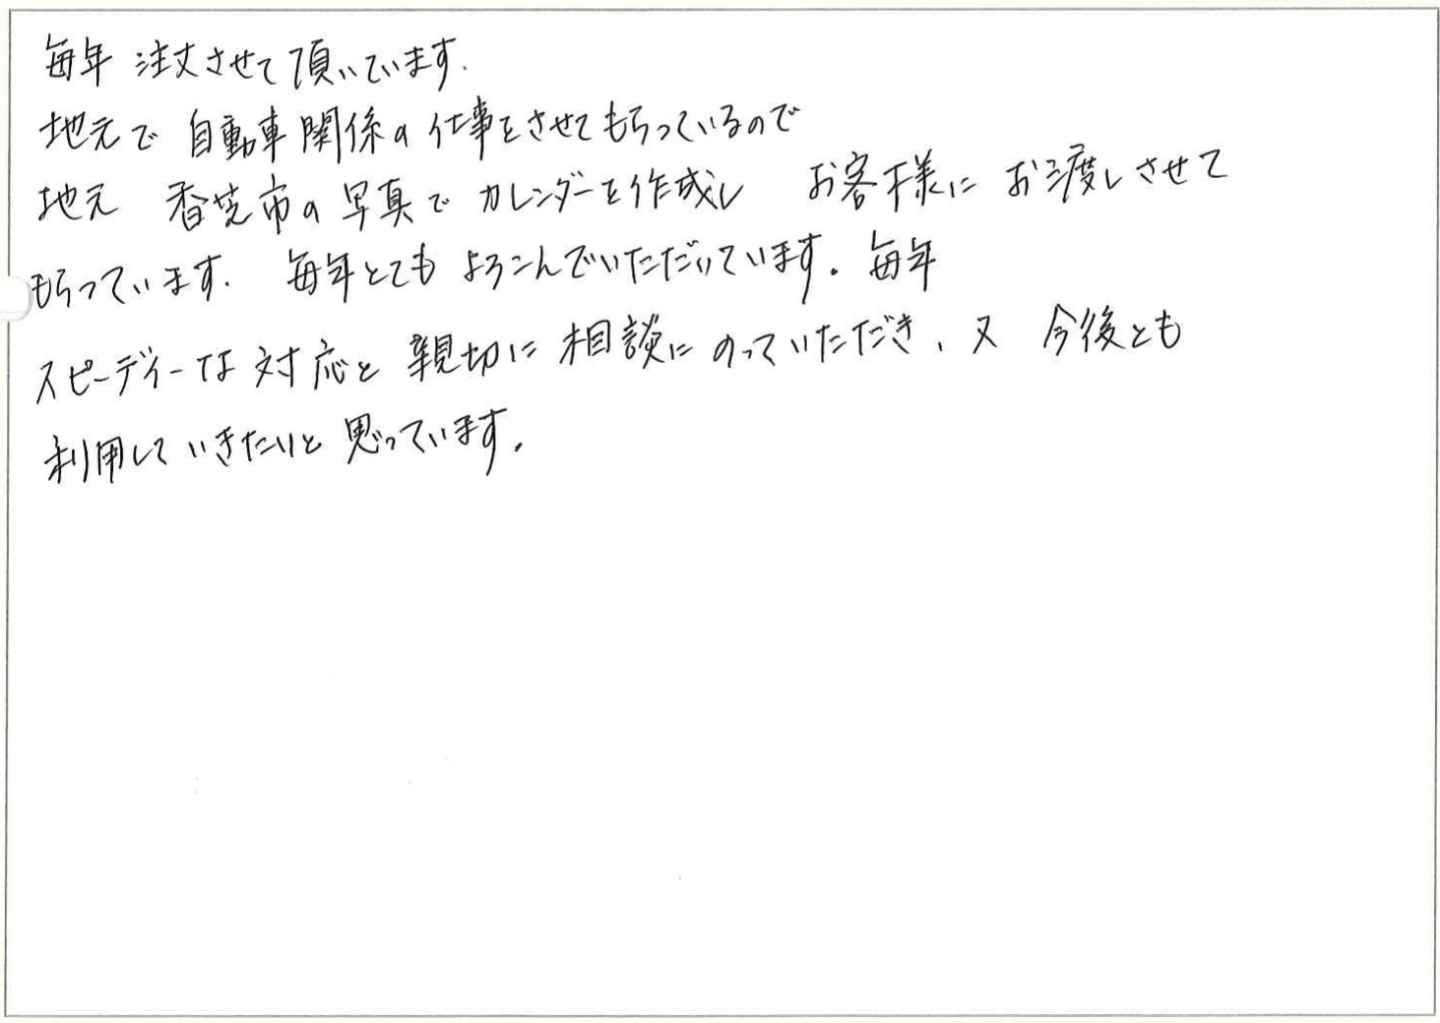 毎年 注文させて頂いています.
地元で 自動車関係の仕事をさせてもらっているので
地元 香芝市の写真でカレンダーを作成し お客様に お渡しさせて
もらっています. 毎年とても よろこんでいただいています。毎年
スピーディーな対応と 親切に相談にのっていただき、又 今後とも
利用していきたいと思っています.